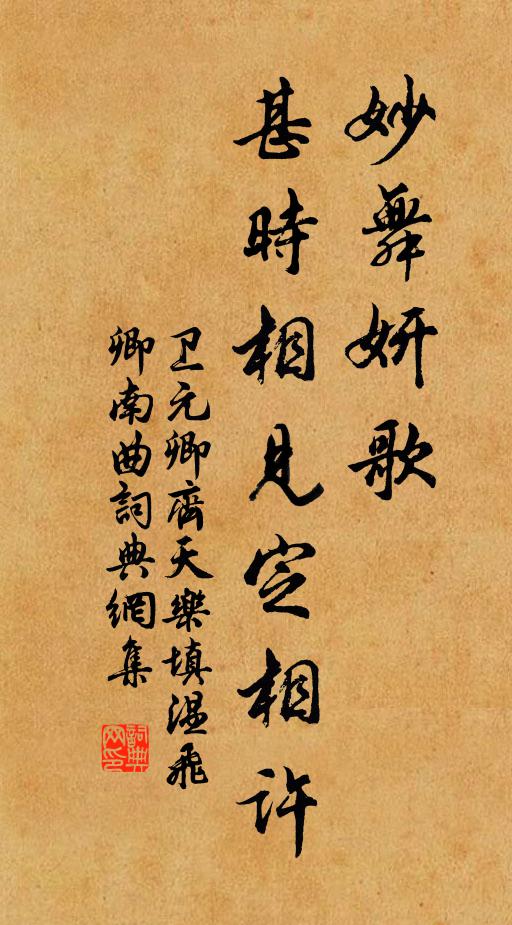 妙舞妍歌
甚時相見定相許
卫元卿齊天樂填温飛
卿南曲詞典網集
詞典網印